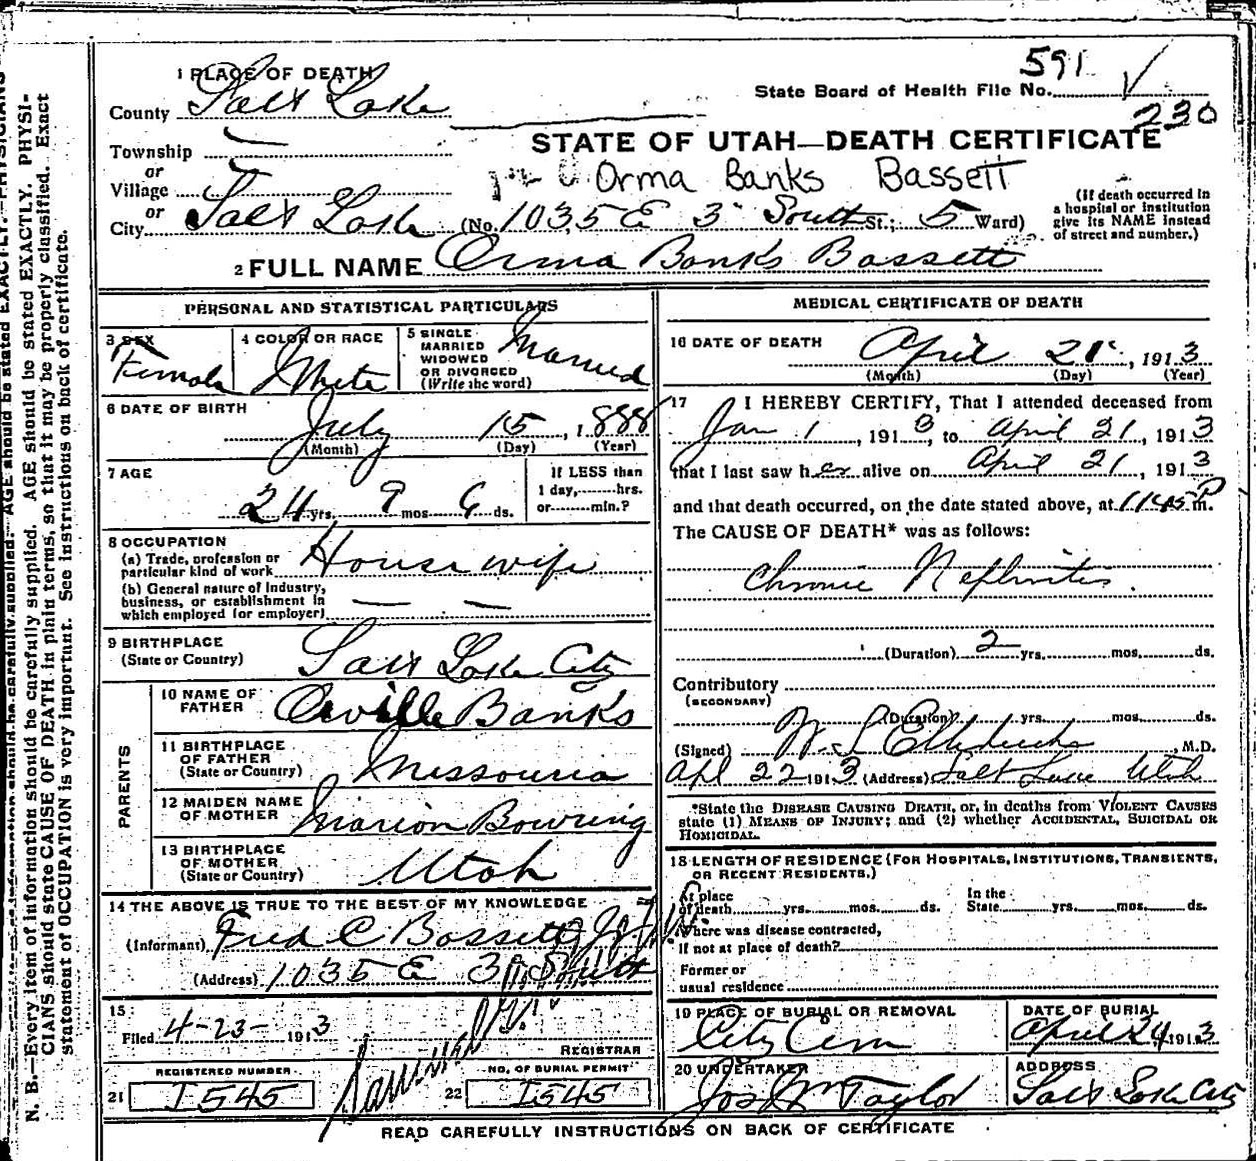 591
State Board of Health File No. ✓
230
1 PLACE OF DEATH
County Salt Lake
STATE OF UTAH—DEATH CERTIFICATE
Township
or
Village
or
Orma Banks Bassett
City Salt Lake (No. 1035 E 3" South St.; 5 Ward)
(If death occurred in
a hospital or institution
give its NAME instead
of street and number.)
2 FULL NAME Orma Banks Bassett
PERSONAL AND STATISTICAL PARTICULARS
3 SEX
Female
4 COLOR OR RACE
White
5 SINGLE
MARRIED
WIDOWED
OR DIVORCED
(Write the word)
Married
6 DATE OF BIRTH
July 15, 1888
(Month) (Day) (Year)
7 AGE
24 yrs. 9 mos. 6 ds.
If LESS than
1 day,........hrs.
or.........min.?
8 OCCUPATION
(a) Trade, profession or
particular kind of work Housewife
(b) General nature of Industry,
business, or establishment in
which employed (or employer) — —
9 BIRTHPLACE
(State or Country) Salt Lake City
PARENTS
10 NAME OF
FATHER Orville Banks
11 BIRTHPLACE
OF FATHER
(State or Country) Missouria
12 MAIDEN NAME
OF MOTHER Marion Bowring
13 BIRTHPLACE
OF MOTHER
(State or Country) Utah
14 THE ABOVE IS TRUE TO THE BEST OF MY KNOWLEDGE
(Informant) Fred C Bassett
(Address) 1035 E 3" South
15
Filed 4-23- 1913
REGISTRAR
REGISTERED NUMBER
21 I545
NO. OF BURIAL PERMIT
22 I545
MEDICAL CERTIFICATE OF DEATH
16 DATE OF DEATH
April 21, 1913
(Month) (Day) (Year)
17 I HEREBY CERTIFY, That I attended deceased from
Jan 1, 1913, to April 21, 1913
that I last saw her alive on April 21, 1913
and that death occurred, on the date stated above, at 11:45 P m.
The CAUSE OF DEATH* was as follows:
Chronic Nephritis.
(Duration) 2 yrs. mos. ds.
Contributory
(SECONDARY)
(Duration) yrs. mos. ds.
(Signed) , M.D.
Apl 22 1913 (Address) Salt Lake Utah
*State the DISEASE CAUSING DEATH, or, in deaths from VIOLENT CAUSES
state (1) MEANS OF INJURY; and (2) whether ACCIDENTAL, SUICIDAL OR
HOMICIDAL.
18 LENGTH OF RESIDENCE (FOR HOSPITALS, INSTITUTIONS, TRANSIENTS,
OR RECENT RESIDENTS.)
At place
of death yrs. mos. ds.
In the
State yrs. mos. ds.
Where was disease contracted,
if not at place of death?
Former or
usual residence
19 PLACE OF BURIAL OR REMOVAL
City Cem
DATE OF BURIAL
April 24 1913
20 UNDERTAKER
Jos Wm Taylor
ADDRESS
Salt Lake City
READ CAREFULLY INSTRUCTIONS ON BACK OF CERTIFICATE
N. B.—Every item of information should be carefully supplied. AGE should be stated EXACTLY. PHYSI-
CIANS should state CAUSE OF DEATH in plain terms, so that it may be properly classified. Exact
statement of OCCUPATION is very important. See instructions on back of certificate.